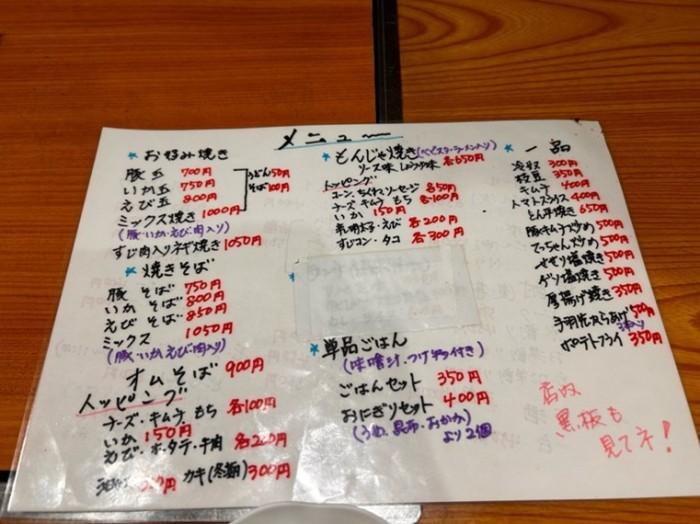 メニュー
*お好み焼き
豚玉 700円
いか玉 750円
えび玉 800円
うどん50円
そば100円
ミックス焼き 1000円
(豚・いか・えび・肉入り)
すじ肉入りネギ焼き 1050円
*焼きそば
豚そば 750円
いかそば 800円
えびそば 850円
ミックス 1050円
(豚・いか・えび・肉入り)
オムそば 900円
トッピング
チーズ・キムチ もち 各100円
いか 150円
えび・ホタテ・牛肉 各200円
カキ(冬期)300円
*もんじゃ焼き(ベビスターラーメン入り)
ソース味 しょうゆ味 各650円
トッピング
コーン、ちくわ、ソーセージ 各50円
チーズ キムチ もち 各100円
いか 150円
明太子・えび 各200円
すじコン・タコ 各300円
*単品ごはん
(味噌汁・つけもの付き)
ごはんセット 350円
おにぎりセット 400円
(うめ、昆布・おかか)
より2個
*一品
冷奴 300円
枝豆 350円
キムチ 400円
トマトスライス 400円
とん平焼き 650円
豚キムチ炒め 500円
てっちゃん炒め 500円
せせり塩焼き 500円
ゲソ塩焼き 500円
厚揚げ焼き 350円
手羽先からあげ 500円
ポテトフライ 350円
黒板も
見てネ!